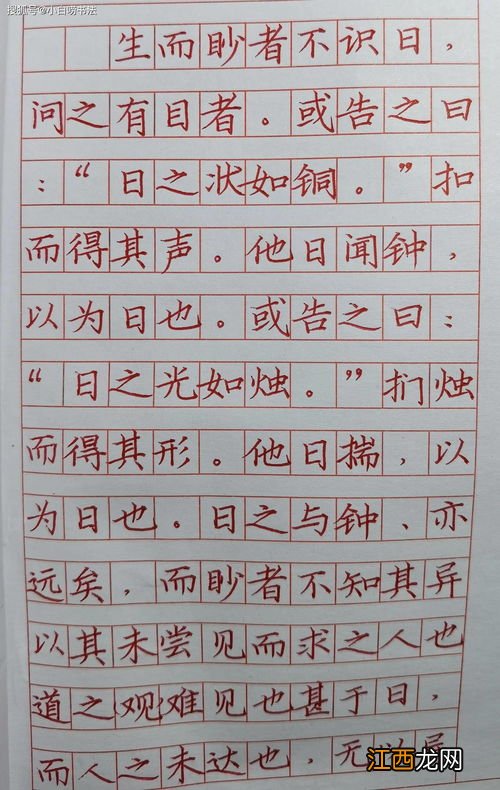 搜狐号@小白唠书法
生而眇者不识日，
问之有目者。或告之曰
：“日之状如铜。”扣
而得其声。他日闻钟，
以为日也。或告之曰：
“日之光如烛。”扪烛
而得其形。他日揣，以
为日也。日之与钟、亦
远矣，而眇者不知其异
以其未尝见而求之人也
道之观难见也甚于日，
而人之未达也，无以异
江西龙网